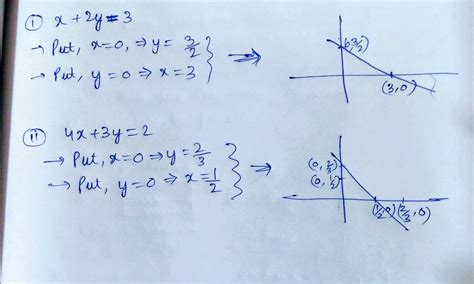 (i) x + 2y = 3
→ Put, x=0, ⇒ y = 3/2
→ Put, y=0 ⇒ x = 3
(0,3/2)
(3,0)
(ii) 4x+3y = 2
→ Put, x=0 ⇒ y = 2/3
→ Put, y=0 ⇒ x = 1/2
(0, 2/3)
(0, 1/2)
(1/2,0) (2/3, 0)